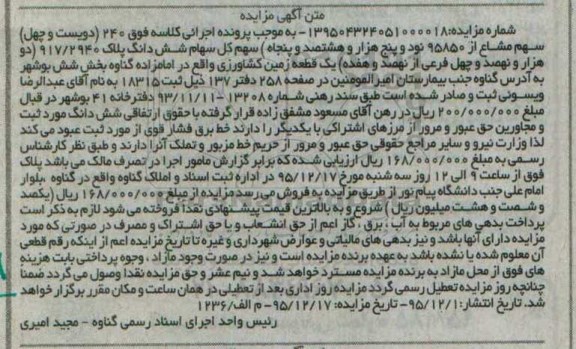 متن آگهی مزایده
شماره مزایده:۱۳۹۵۰۴۳۲۴۰۵۱۰۰۰۰۱۸- به موجب پرونده اجرائی کلاسه فوق ۲۴۰ (دویست و چهل)
سهم مشاع از ۹۵۸۵۰ نود و پنج هزار و هشتصد و پنجاه ) سهم کل سهام شش دانگ پلاک ۹۱۷/۲۹۴۰ (دو
هزار و نهصد و چهل فرعی از نهصد و هفده) یک قطعه زمین کشاورزی واقع در امامزاده گناوه بخش شش بوشهر
به آدرس گناوه جنب بیمارستان امیرالمومنین در صفحه ۲۵۸ دفتر ۱۳۷ ذیل ثبت ۱۸۳۱۵ به نام آقای عبدالرضا
ویسونی ثبت و صادر شده است طبق سند رهنی شماره ۱۳۲۰۸ -۹۳/۱۱/۱۱ دفترخانه ۴۱ بوشهر در قبال
مبلغ ۲۰۰/۰۰۰/۰۰۰ ریال در رهن آقای مسعود مشفق زاده قرار گرفته با حقوق ارتفاقی شش دانگ مورد ثبت
و مجاورین حق عبور و مرور از مرزهای اشتراکی با یکدیگر را دارند خط برق فشار قوی از مورد ثبت عبود می کند
لذا وزارت نیرو و سایر مراجع حقوقی حق عبور و مرور از حریم خط مزبور و تملک آنرا دارند و طبق نظر کارشناس
رسمی به مبلغ ۱۶۸/۰۰۰/۰۰۰ ریال ارزیابی شده که برابر گزارش مامور اجرا در تصرف مالک می باشد پلاک
فوق از ساعت ۹ الی ۱۲ روز سه شنبه مورخ ۹۵/۱۲/۱۷ در اداره ثبت اسناد و املاک گناوه واقع در گناوه ،بلوار
امام علی جنب دانشگاه پیام نور از طریق مزایده به فروش می رسد مزایده از مبلغ ۱۶۸/۰۰۰/۰۰۰ ریال (یکصد
و شصت و هشت میلیون ریال ) شروع و به بالاترین قیمت پیشنهادی نقداً فروخته می شود لازم به ذکر است
پرداخت بدهی های مربوط به آب ، برق ، گاز اعم از حق انشعاب و یا حق اشتراک و مصرف در صورتی که مورد
مزایده دارای آنها باشد و نیز بدهی های مالیاتی و عوارض شهرداری و غیره تا تاریخ مزایده اعم از اینکه رقم قطعی
آن معلوم شده یا نشده باشد به عهده برنده مزایده است و نیز در صورت وجود مازاد ، وجوه پرداختی بابت هزینه
های فوق از محل مازاد به برنده مزایده مسترد خواهد شد و نیم عشر و حق مزایده نقدا وصول می گردد ضمناً
چنانچه روز مزایده تعطیل رسمی گردد مزایده روز اداری بعد از تعطیلی در همان ساعت و مکان مقرر برگزار خواهد
شد. تاریخ انتشار: ۹۵/۱۲/۱- تاریخ مزایده: ۹۵/۱۲/۱۷- م الف/۱۲۳۶
رئیس واحد اجرای اسناد رسمی گناوه - مجید امیری